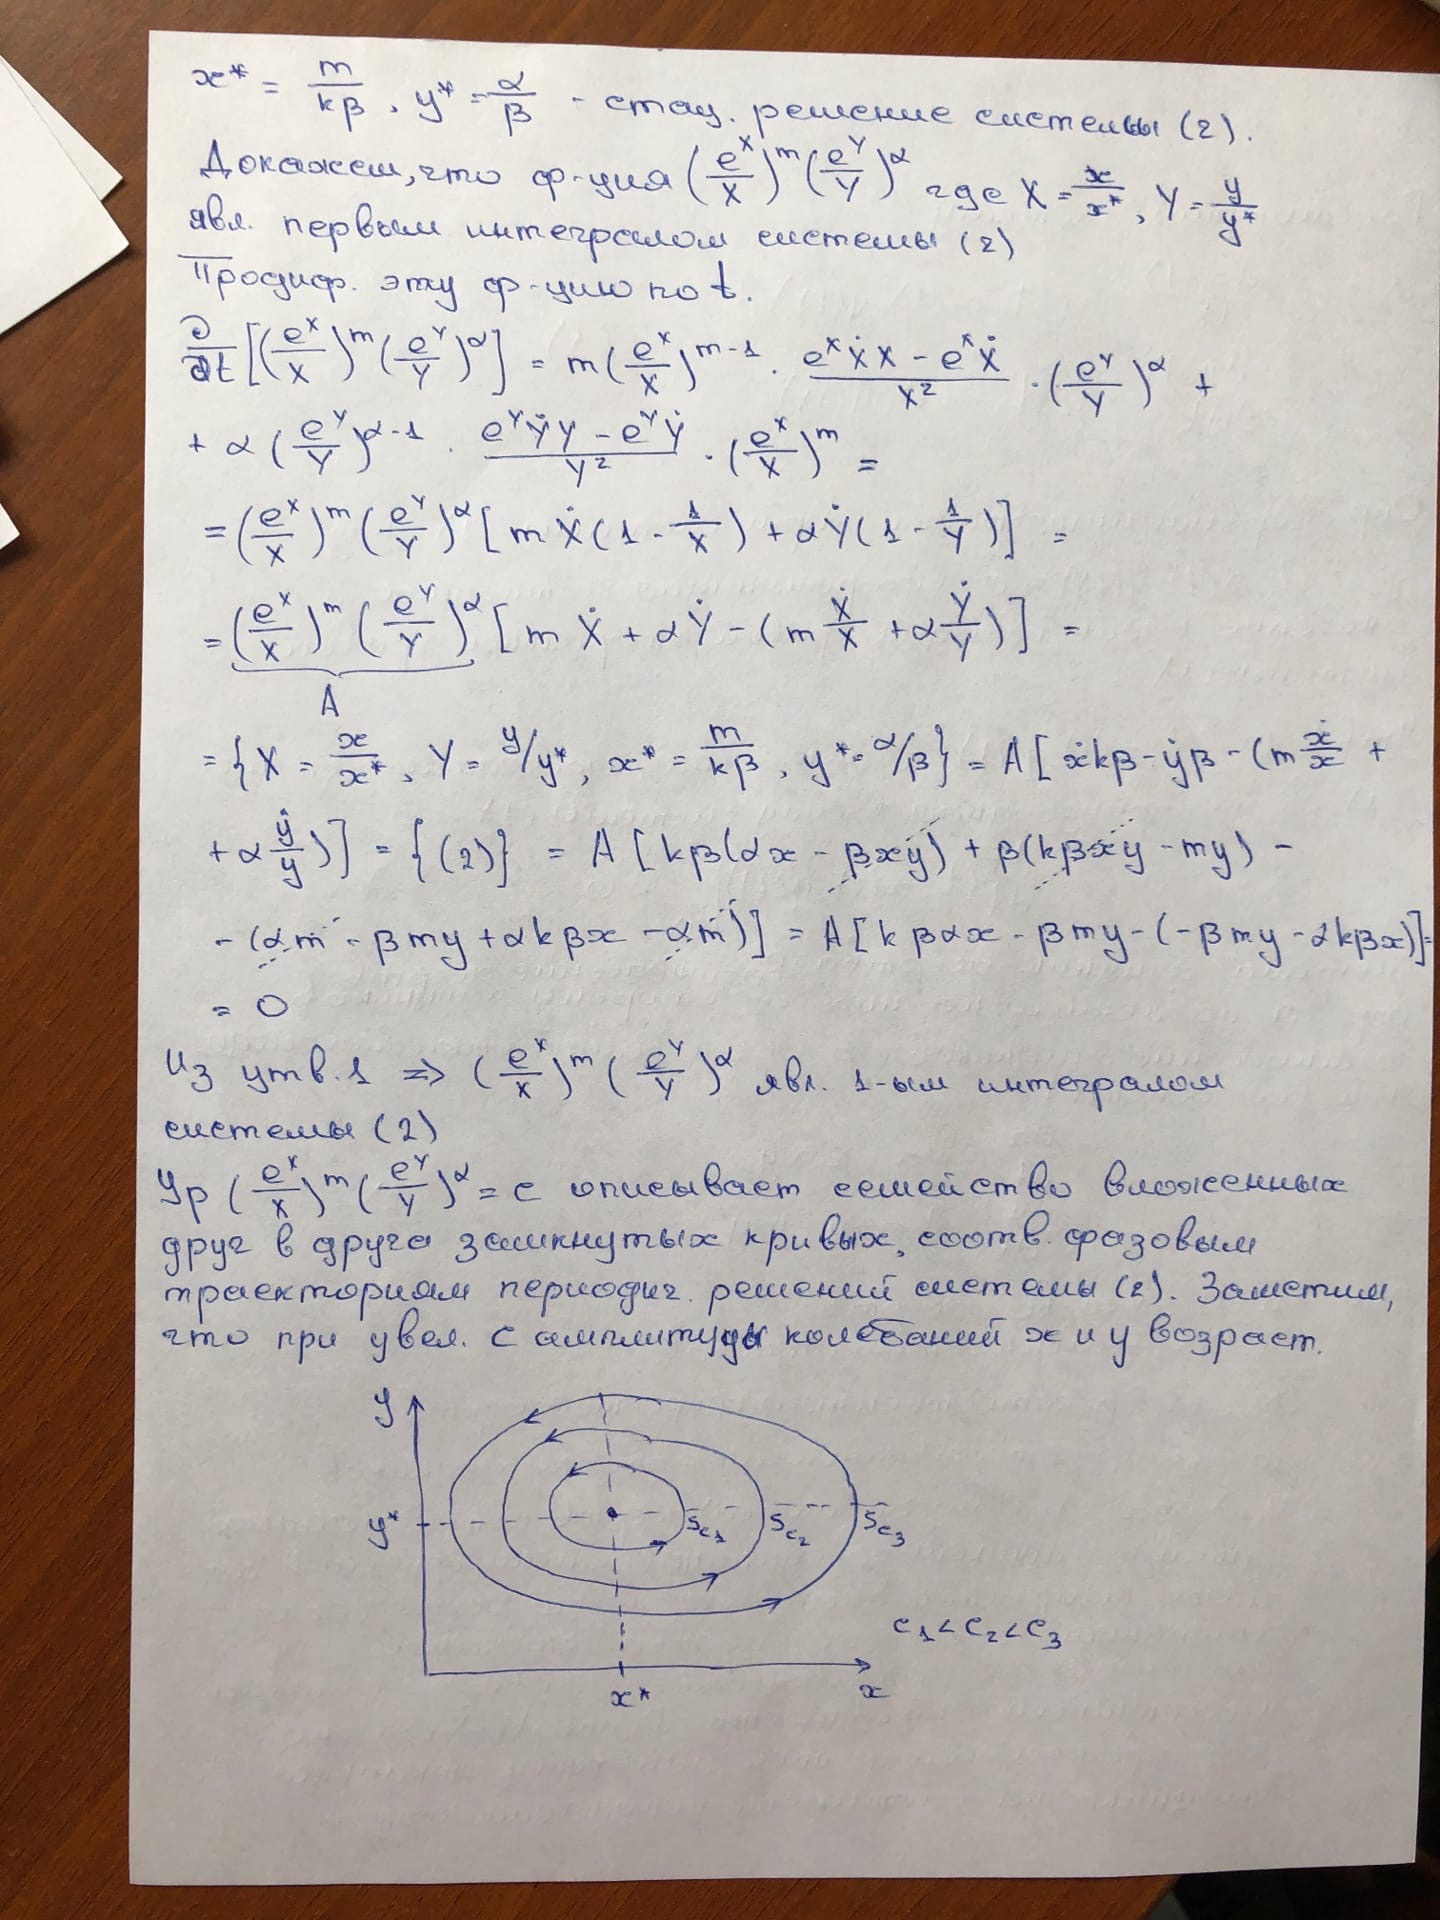 x* = m/kβ, y* = α/β - стац. решение системы (2).
Докажем, что ф-ция (e^X/X)^m (e^Y/Y)^α где X = x/x*, Y = y/y*
явл. первым интегралом системы (2)
Продиф. эту ф-цию по t.
∂/∂t [(e^X/X)^m (e^Y/Y)^α] = m(e^X/X)^{m-1} · (e^X Ẋ X - e^X Ẋ)/X² · (e^Y/Y)^α +
+ α (e^Y/Y)^{α-1} · (e^Y Ẏ Y - e^Y Ẏ)/Y² · (e^X/X)^m =
= (e^X/X)^m (e^Y/Y)^α [m Ẋ (1 - 1/X) + α Ẏ (1 - 1/Y)] =
= (e^X/X)^m (e^Y/Y)^α [m Ẋ + α Ẏ - (m Ẋ/X + α Ẏ/Y)] =
A
= {X = x/x*, Y = y/y*, x* = m/kβ, y* = α/β} = A [ẋkβ - ẏβ - (m ẋ/x +
+ α ẏ/y)] = {(2)} = A [kβ(αx - βxy) + β(kβxy - my) -
- (αm - βmy + αkβx - αm)] = A [kβαx - βmy - (-βmy - αkβx)] =
= 0
Из утв. 1 ⇒ (e^X/X)^m (e^Y/Y)^α явл. 1-ым интегралом
системы (2)
Ур (e^X/X)^m (e^Y/Y)^α = c описывает семейство вложенных
друг в друга замкнутых кривых, соотв. фазовым
траекториям периодич. решений системы (2). Заметим,
что при увел. c амплитуды колебаний x и y возраст.
y
y*
S_{c1} S_{c2} S_{c3}
c₁ < c₂ < c₃
x* x